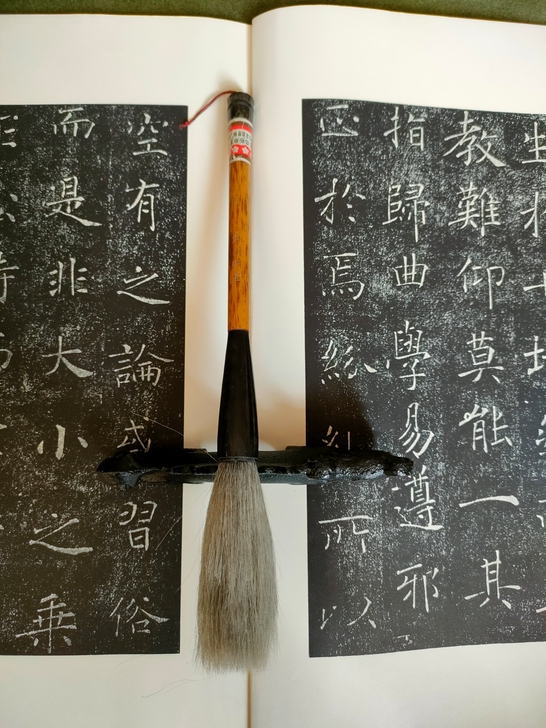 教難仰莫能一其
指歸曲學易遵邪
正於焉紛糾所以
空有之論或習俗
而是非大小之乘